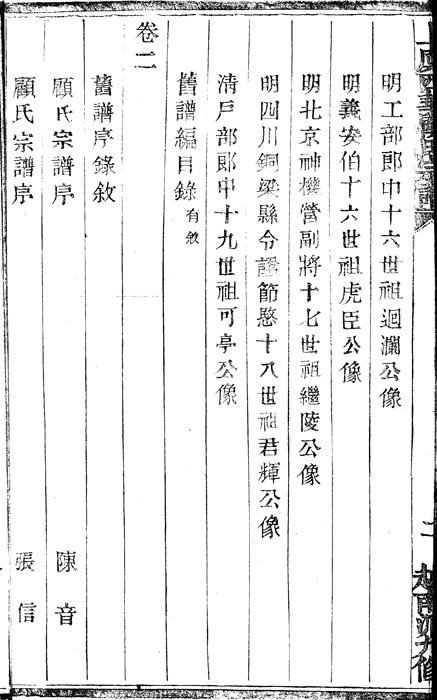 明工部郎中十六世祖迴瀾公像
明義安伯十六世祖虎臣公像
明北京神機營副將十七世祖繼陵公像
明四川銅梁縣令諡節愍十八世祖君輝公像
清戶部郎中十九世祖可亭公像
舊譜編目錄 有敘
卷二
舊譜序錄敘
顧氏宗譜序 陳音
顧氏宗譜序 張信